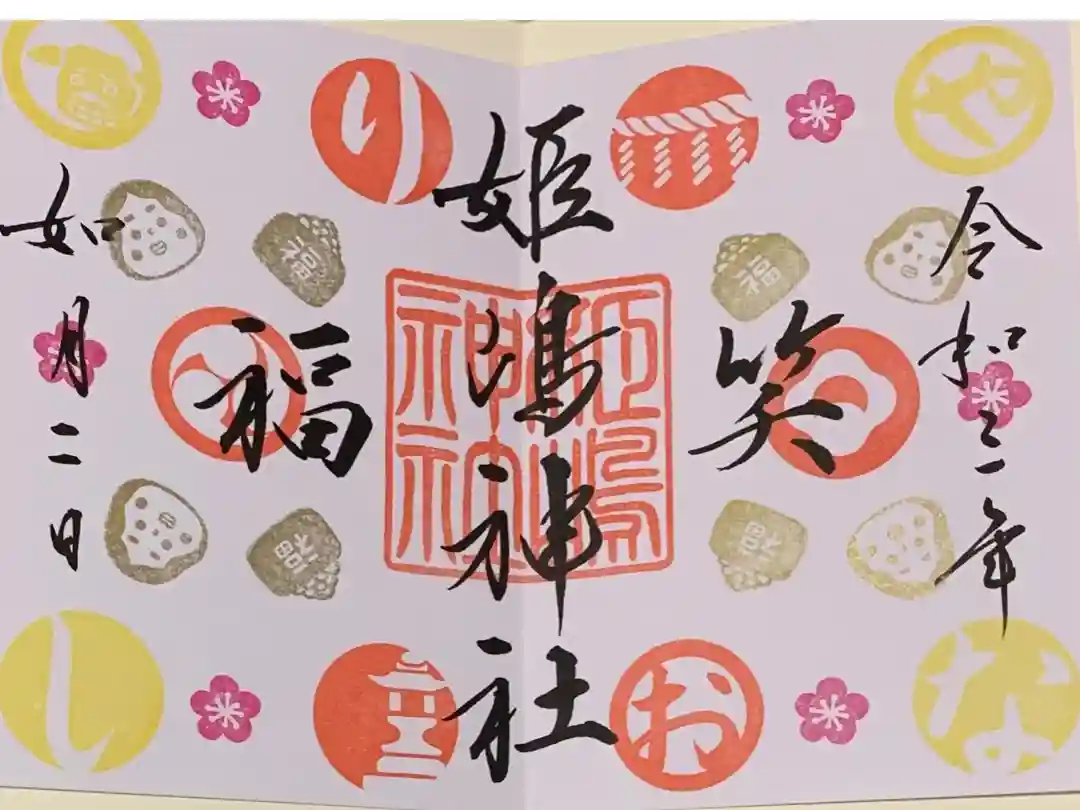 令和三年
や
な
笑
お
福
福
姫嶋神社
り
福
福
福
し
如月二日